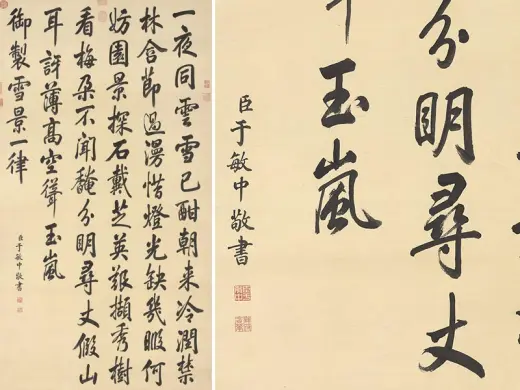 一夜同雲雪已酣朝来冷潤禁
林含節過漫惜燈光缺幾暇何
妨園景探石戴芝英艱擷秀樹
看梅朶不聞馣分明尋丈假山
耳許薄高空聳玉嵐
御製雪景一律
臣于敏中敬書
分明尋丈
玉嵐
臣于敏中敬書